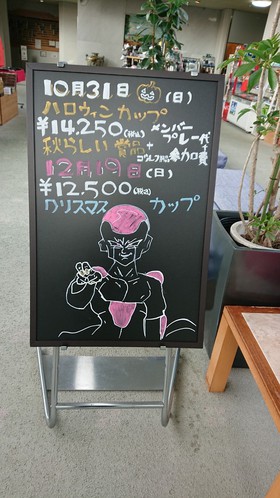 10月31日 (日)
ハロウィンカップ
¥14,250(税込) メンバープレー代
秋らしい賞品+コウレイ用品 +参加費
12月19日(日)
¥12,500(税込)
クリスマス カップ